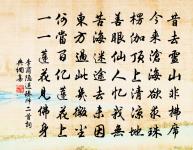 昔去靈山非拂席
今來滄海欲求珠
楞伽頂上清涼地
善眼仙人憶我無
苦海迷途去未因
東方過此幾微塵
何當百億蓮花上
一一蓮花見佛身
李商隱送臻師二首